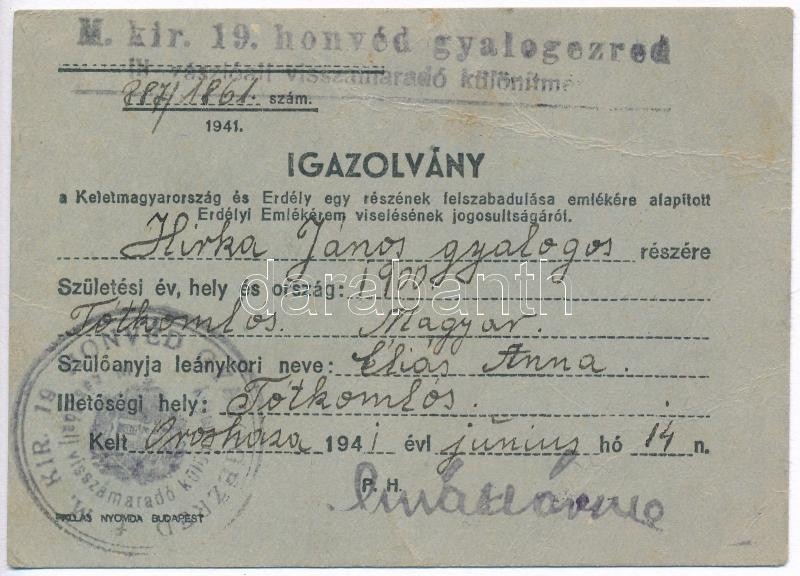 M. kir. 19. honvéd gyalogezred
III. zászlóalj visszamaradó különítmé
787/1861. szám.
1941.
IGAZOLVÁNY
a Keletmagyarország és Erdély egy részének felszabadulása emlékére alapított
Erdélyi Emlékérem viselésének jogosultságáról.
Hirka János gyalogos részére
darabanth
Születési év, hely és ország:
Tótkomlós. Magyar.
Szülőanyja leánykori neve: Éliás Anna.
Illetőségi hely: Tótkomlós.
Kelt Orosháza 1941 évi június hó 14 n.
P. H.
M. KIR. 19. HONVÉD GYALOGEZRED
visszamaradó
PALLAS NYOMDA BUDAPEST